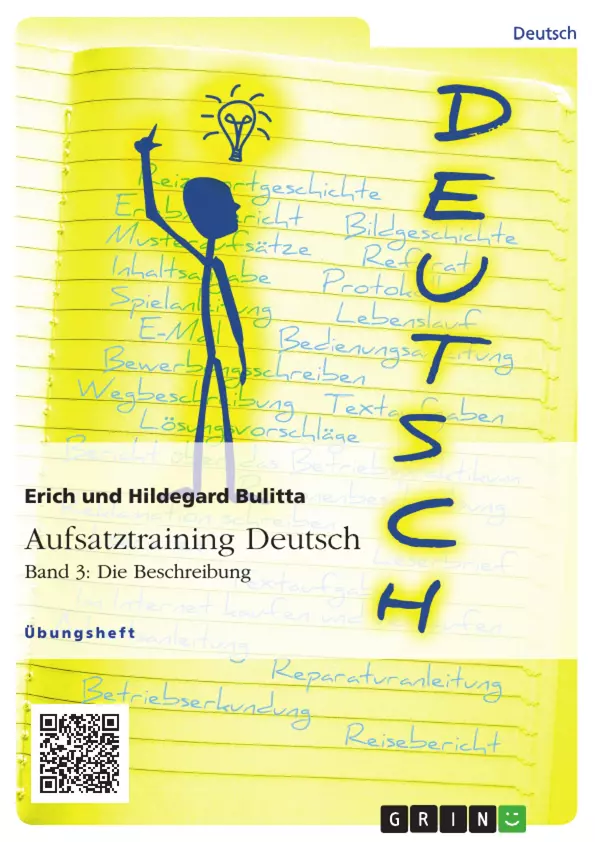 Deutsch
DEUTSCH
Reizwortgeschichte
Erlebnisbericht Bildgeschichte
Musteraufsätze Referat
Inhaltsangabe Protokoll
Spielanleitung Lebenslauf
E-Mail Bedienungsanleitung
Bewerbungsschreiben
Wegbeschreibung Textaufgaben
Lösungsvorschläge
Bericht über das Betriebspraktikum
Erich und Hildegard Bulitta
schreiben
Aufsatztraining Deutsch
Leserbrief
Band 3: Die Beschreibung
Im Internet kaufen und verkaufen
Übungsheft
Reparaturanleitung
Betriebserkundung
Reisebericht
GRIN